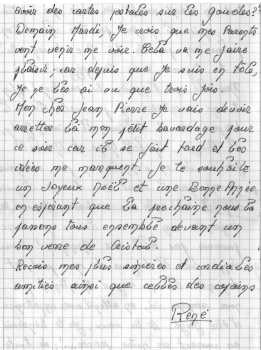 avoir des cartes postales sur les gaudes?
Demain Mardi, Je crois que mes Parents
vont venir me voir. Cela va me faire
plaisir, car depuis que Je suis en
Je ne les ai vu que trois fois.
Mon cher Jean Pierre Je vais devoir
arretter là mon petit bavardage pour
ce soir car il se fait tard et les
idées me manquent. Je te souhaite
un Joyeux Noël et une Bonne Année
en espérant que la prochaine nous la
passons tous ensemble devant un
bon verre de
Recois mes plus sincères et cordiales
amitiés ainsi que celles des copains
René